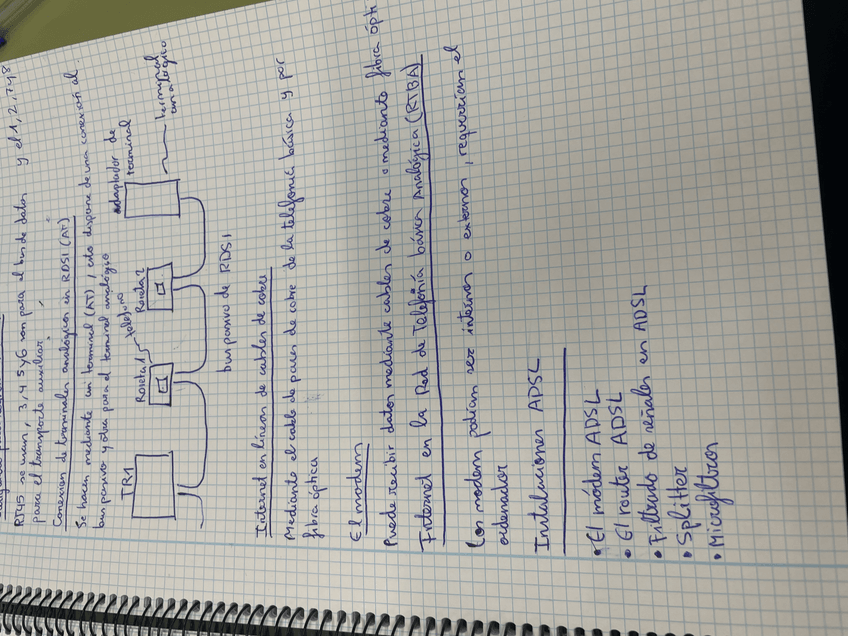 RJ45 se usan, 3,4 5 y 6 son para el bus de datos y el 1,2,7 y 8
para el transporte auxiliar.
Conexion de terminales analógicos en RDSI (AT)
Se hacen mediante un terminal (AT), esto dispone de una conexión al
bus pasivo y otra para el terminal analógico
TR1
Roseta 1
telefono
Roseta 2
adaptador de
terminal
terminal
analógico
bus pasivo de RDSI
Internet en líneas de cables de cobre
Mediante el cable de pares de cobre de la telefonía básica y por
fibra óptica
El modem
Puede recibir datos mediante cables de cobre o mediante fibra ópti
Internet en la Red de Telefonía básica Analógica (RTBA)
Los modem podian ser internos o externos, requerriam el
ordenador
Instalaciones ADSL
• El módem ADSL
• El router ADSL
• Filtrado de señales en ADSL
• Splitter
• Microfiltros